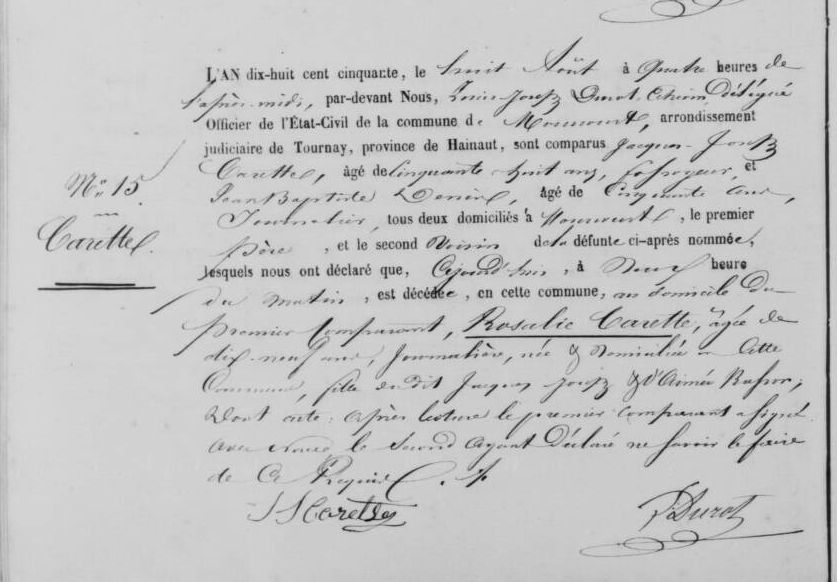 L'AN dix-huit cent cinquante, le huit Août à quatre heures de
l'après-midi, par-devant Nous, Louis Joseph Durot, Echevin Délégué
Officier de l'État-Civil de la commune de Mourcourt, arrondissement
judiciaire de Tournay, province de Hainaut, sont comparus Jacques Joseph
N° 15
Carette, âgé de cinquante huit ans, fossoyeur, et
Jean Baptiste âgé de Cinquante ans,
Carette
Journalier, tous deux domiciliés à Mourcourt, le premier
père, et le second Voisin de la défunte ci-après nommée,
lesquels nous ont déclaré que, Cejourd'hui, à Neuf heure
du matin, est décédée, en cette commune, au domicile du
premier Comparant, Rosalie Carette, âgée de
dix-neuf ans, Journalière, née & Domiciliée en Cette
Commune, fille du dit Jacques Joseph & d'Aimée
Dont acte, après lecture le premier comparant a signé
avec nous le Second ayant Déclaré ne Savoir le faire
de Ce Requis.
JJ Carette
L Durot